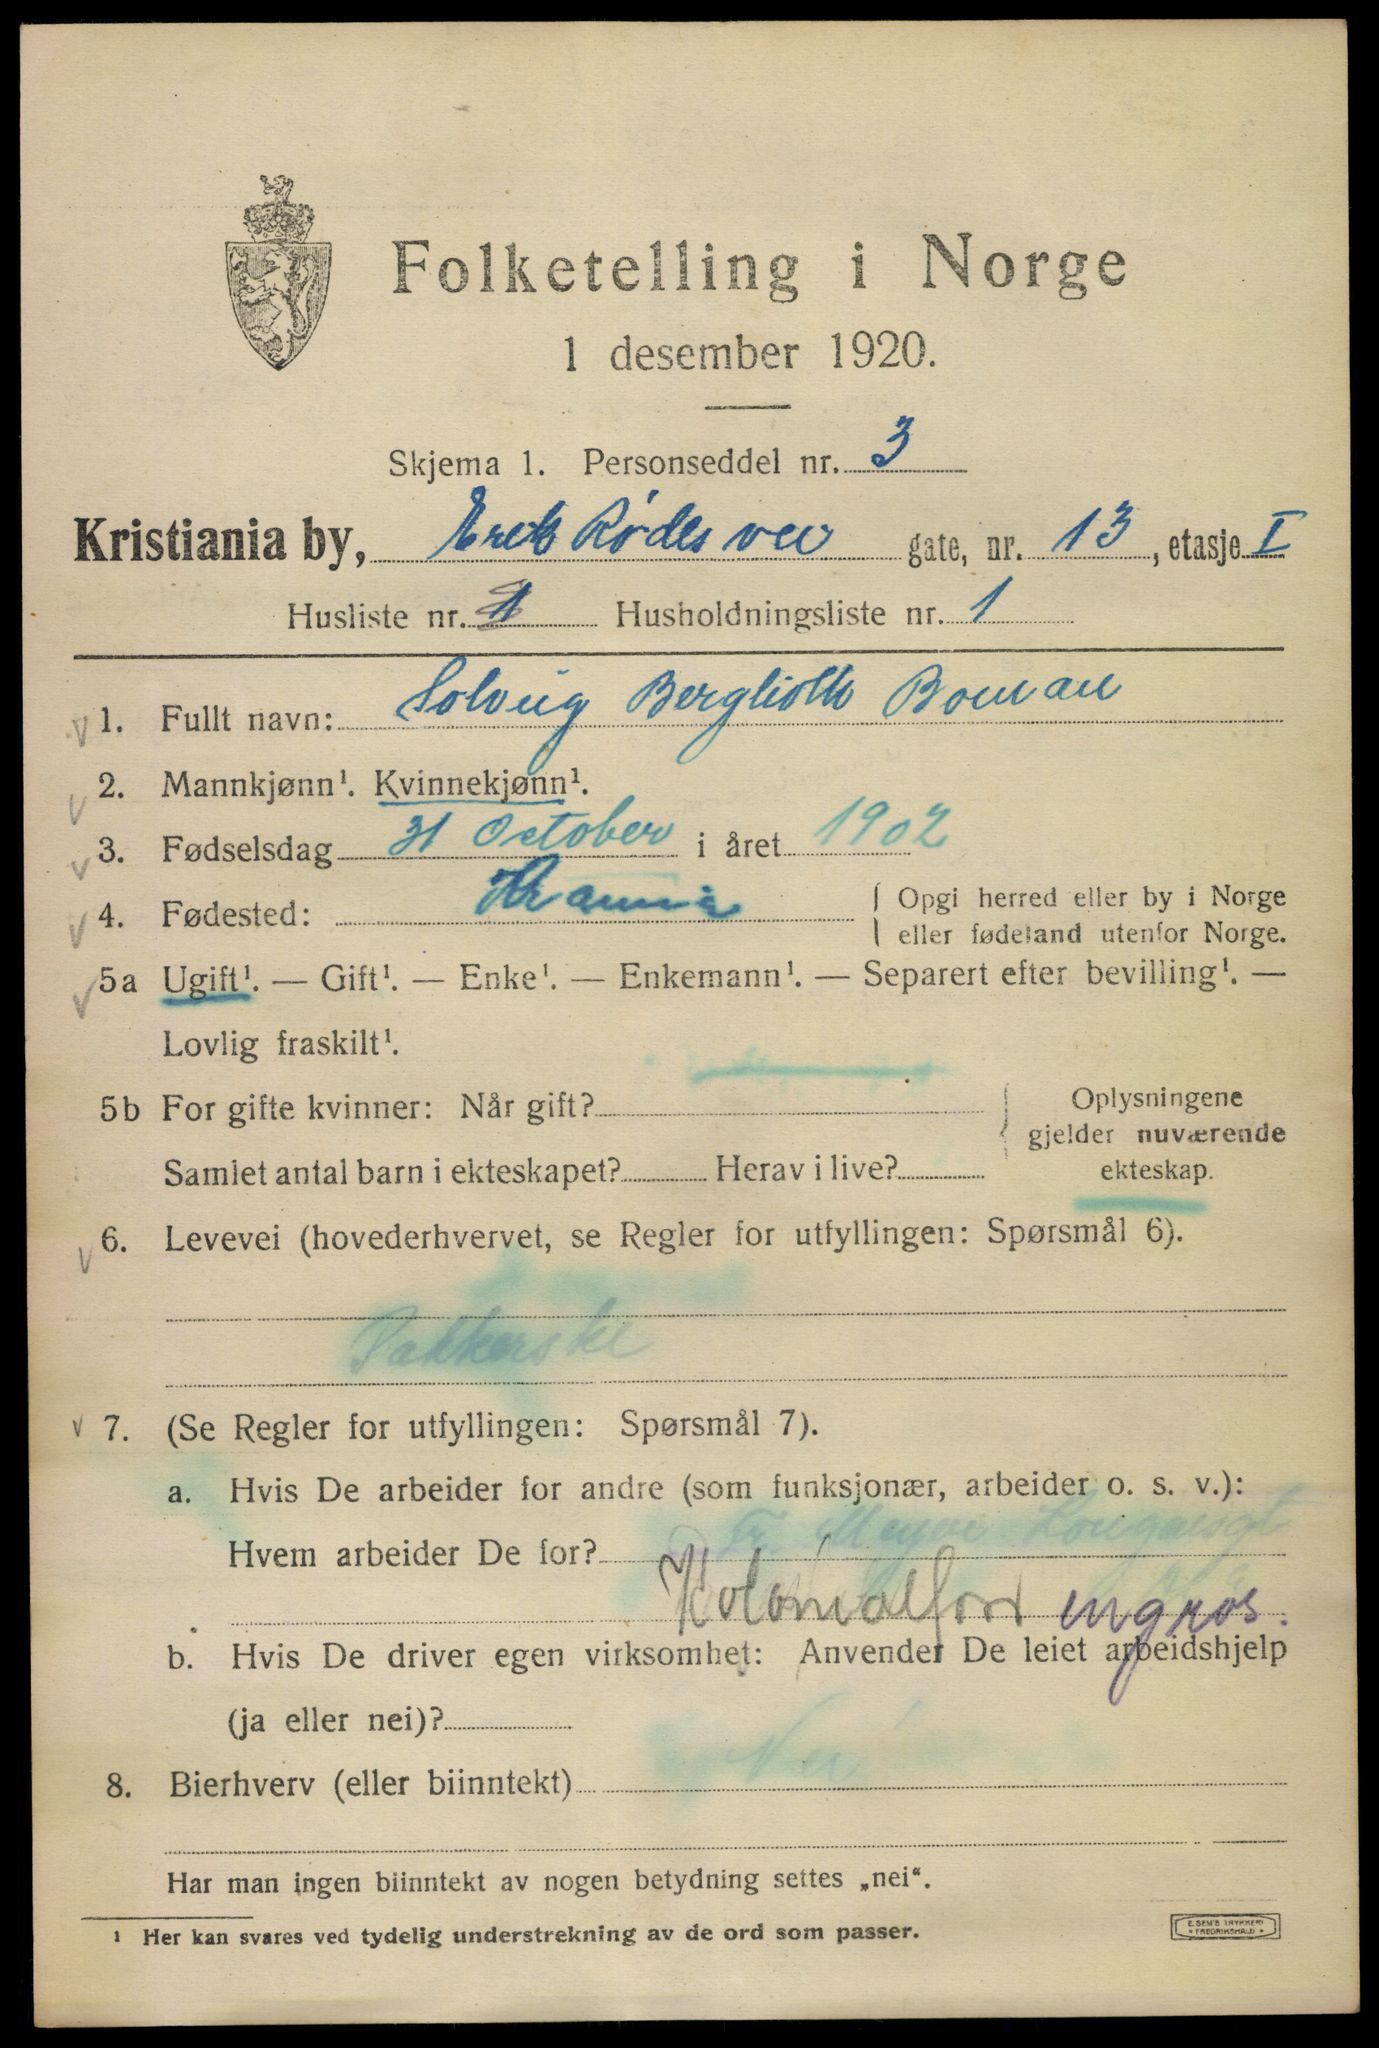 Folketelling i Norge
1 desember 1920.
Skjema 1. Personseddel nr. 3
Kristiania by, Rødes vei gate, nr. 13, etasje I
Husliste nr. 1 Husholdningsliste nr. 1
1. Fullt navn: Solveig Berglioth Boman
2. Mannkjønn¹. Kvinnekjønn¹.
3. Fødselsdag 31 October i året 1902
4. Fødested: { Opgi herred eller by i Norge
eller fødeland utenfor Norge.
5a Ugift¹. — Gift¹. — Enke¹. — Enkemann¹. — Separert efter bevilling¹. —
Lovlig fraskilt¹.
5b For gifte kvinner: Når gift? { Oplysningene
gjelder nuværende
Samlet antal barn i ekteskapet? Herav i live? ekteskap.
6. Levevei (hovederhvervet, se Regler for utfyllingen: Spørsmål 6).
Pakkerske
7. (Se Regler for utfyllingen: Spørsmål 7).
a. Hvis De arbeider for andre (som funksjonær, arbeider o. s. v.):
Hvem arbeider De for? Meyer
Kolonialforr engros.
b. Hvis De driver egen virksomhet: Anvender De leiet arbeidshjelp
(ja eller nei)?
8. Bierhverv (eller biinntekt) Nei
Har man ingen biinntekt av nogen betydning settes „nei“.
¹ Her kan svares ved tydelig understrekning av de ord som passer.
E. SEM'S TRYKKERI
* FREDRIKSHALD *